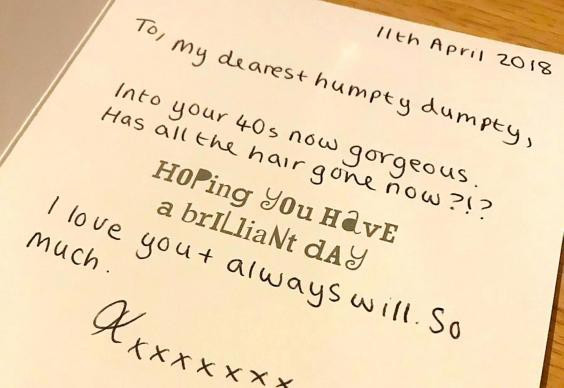 11th April 2018
To, my dearest humpty dumpty,
Into your 40s now gorgeous.
Has all the hair gone now?!?
HOPing YOu HavE
a brILliaNt dAY
I love you + always will. So
much.
xxxxxxxx